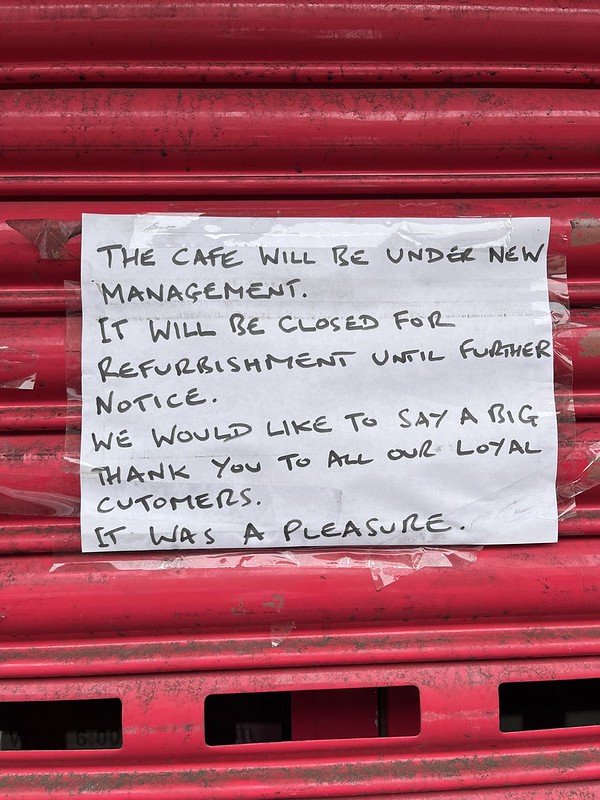 THE CAFE WILL BE UNDER NEW
MANAGEMENT.
IT WILL BE CLOSED FOR
REFURBISHMENT UNTIL FURTHER
NOTICE.
WE WOULD LIKE TO SAY A BIG
THANK YOU TO ALL OUR LOYAL
CUTOMERS.
IT WAS A PLEASURE.
6:00